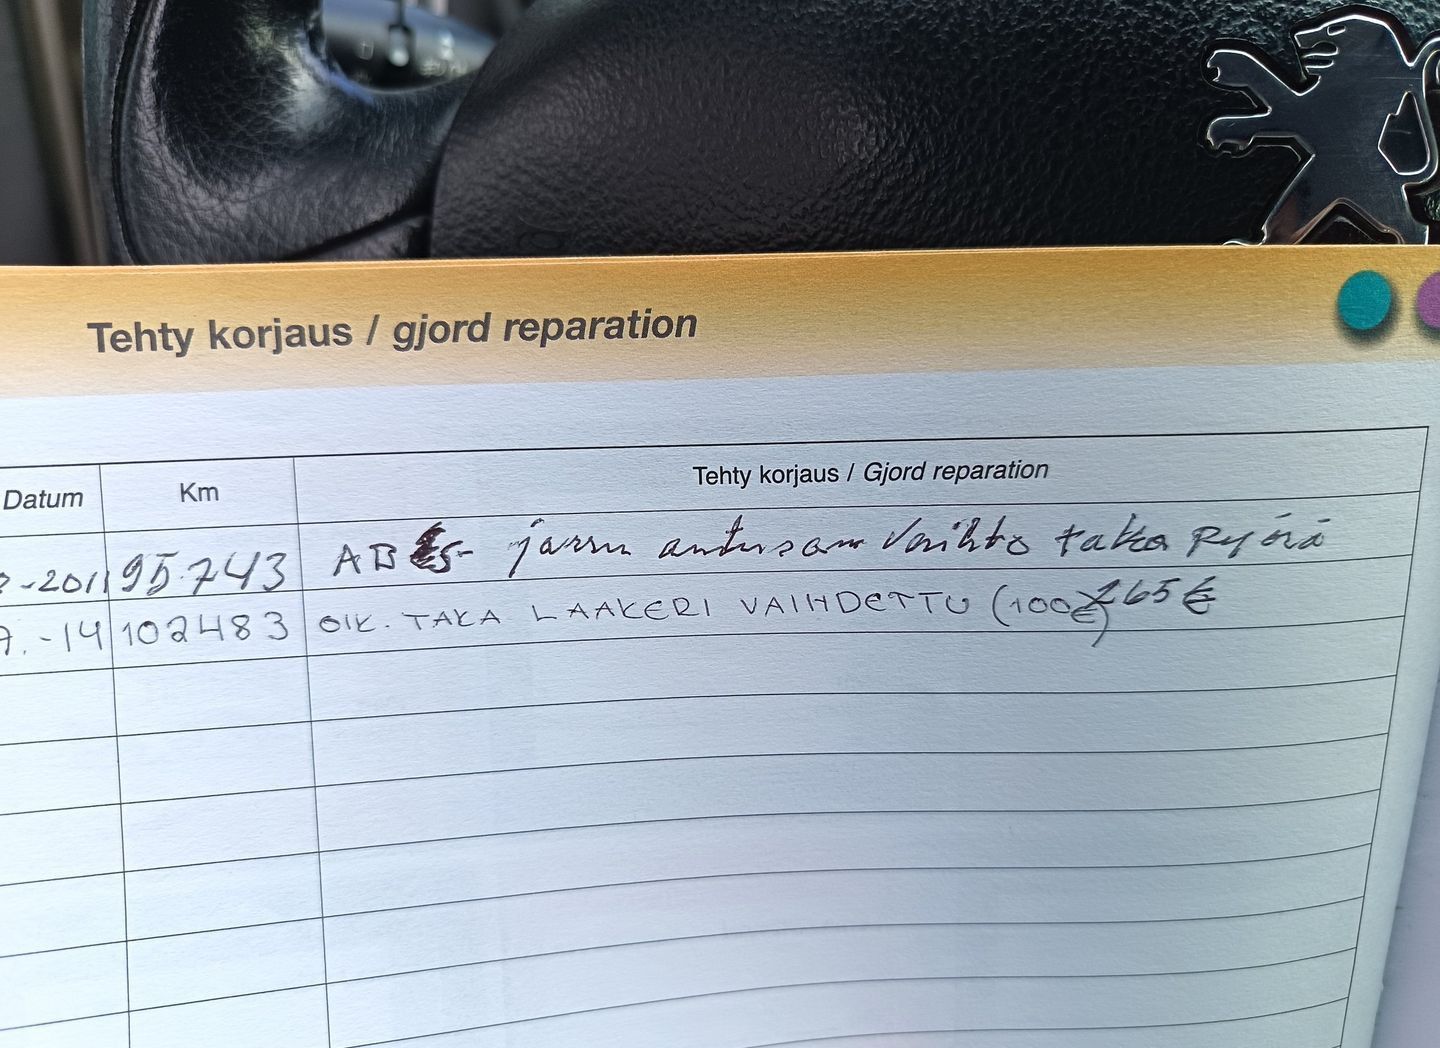 Tehty korjaus / gjord reparation
Datum Km Tehty korjaus / Gjord reparation
-2011 95.743 ABS- jarru anturson vaihto taka pyörä
7.-14 102483 OIK. TAKA LAAKERI VAIHDETTU (100€) 265€